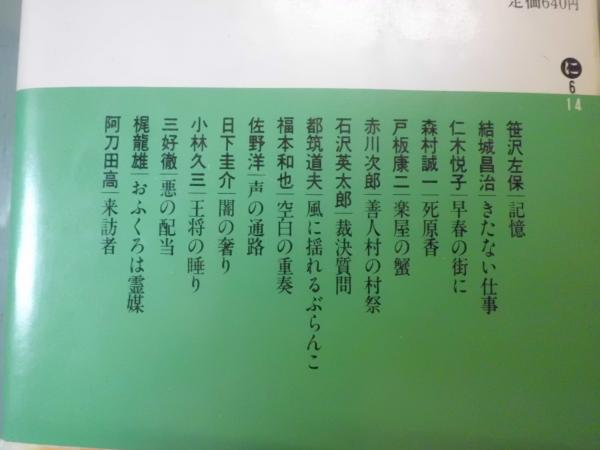 定価640円
に
6
14
笹沢左保│記憶
結城昌治│きたない仕事
仁木悦子│早春の街に
森村誠一│死原香
戸板康二│楽屋の蟹
赤川次郎│善人村の村祭
石沢英太郎│裁決質問
都筑道夫│風に揺れるぶらんこ
福本和也│空白の重奏
佐野洋│声の通路
日下圭介│闇の奢り
小林久三│王将の睡り
三好徹│悪の配当
梶龍雄│おふくろは霊媒
阿刀田高│来訪者